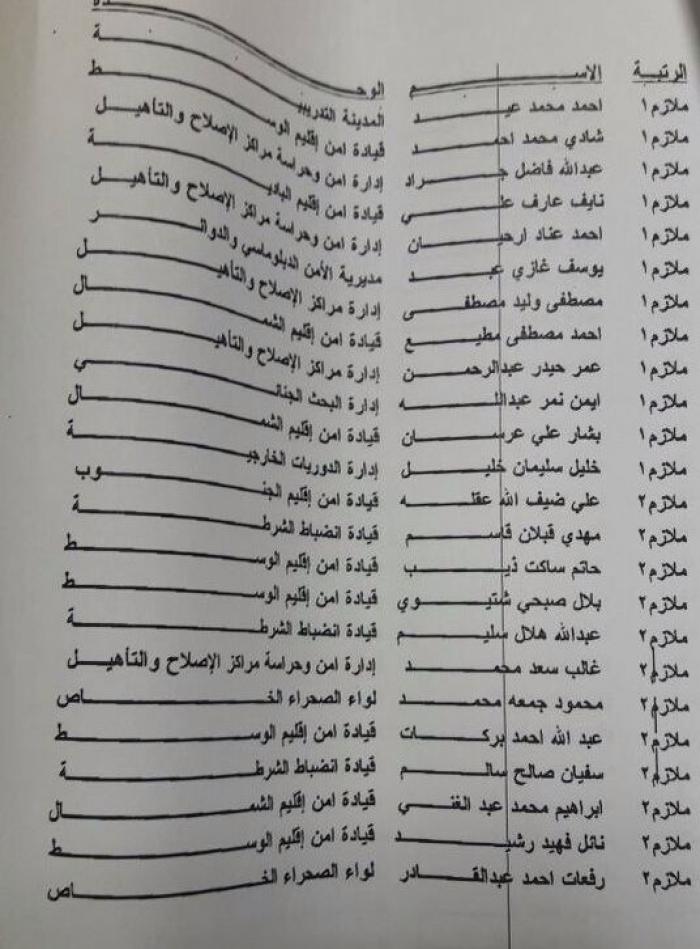 الرتبة الاسم الوحدة
ملازم١ احمد محمد عيد المدينة التدريبية
ملازم١ شادي محمد احمد قيادة امن إقليم الوسط
ملازم١ عبدالله فاضل جراد إدارة امن وحراسة مراكز الإصلاح والتأهيل
ملازم١ نايف عارف علي قيادة امن إقليم البادية
ملازم١ احمد عناد ارحيان إدارة امن وحراسة مراكز الإصلاح والتأهيل
ملازم١ يوسف غازي عبد مديرية الأمن الدبلوماسي والدوائر
ملازم١ مصطفى وليد مصطفى إدارة مراكز الإصلاح والتأهيل
ملازم١ احمد مصطفى مطيع قيادة امن إقليم الشمال
ملازم١ عمر حيدر عبدالرحمن إدارة مراكز الإصلاح والتأهيل
ملازم١ ايمن نمر عبدالله إدارة البحث الجنائي
ملازم١ بشار علي عرسان قيادة امن إقليم الشمال
ملازم١ خليل سليمان خليل إدارة الدوريات الخارجية
ملازم٢ علي ضيف الله عقله قيادة امن إقليم الجنوب
ملازم٢ مهدي قبلان قاسم قيادة انضباط الشرطة
ملازم٢ حاتم ساكت ذيب قيادة امن إقليم الوسط
ملازم٢ بلال صبحي شتيوي قيادة امن إقليم الوسط
ملازم٢ عبدالله هلال سليم قيادة انضباط الشرطة
ملازم٢ غالب سعد محمد إدارة امن وحراسة مراكز الإصلاح والتأهيل
ملازم٢ محمود جمعه محمد لواء الصحراء الخاص
ملازم٢ عبد الله احمد بركات قيادة امن إقليم الوسط
ملازم٢ سفيان صالح سالم قيادة انضباط الشرطة
ملازم٢ ابراهيم محمد عبد الغني قيادة امن إقليم الشمال
ملازم٢ نائل فهيد رشيد قيادة امن إقليم الوسط
ملازم٢ رفعات احمد عبدالقادر لواء الصحراء الخاص